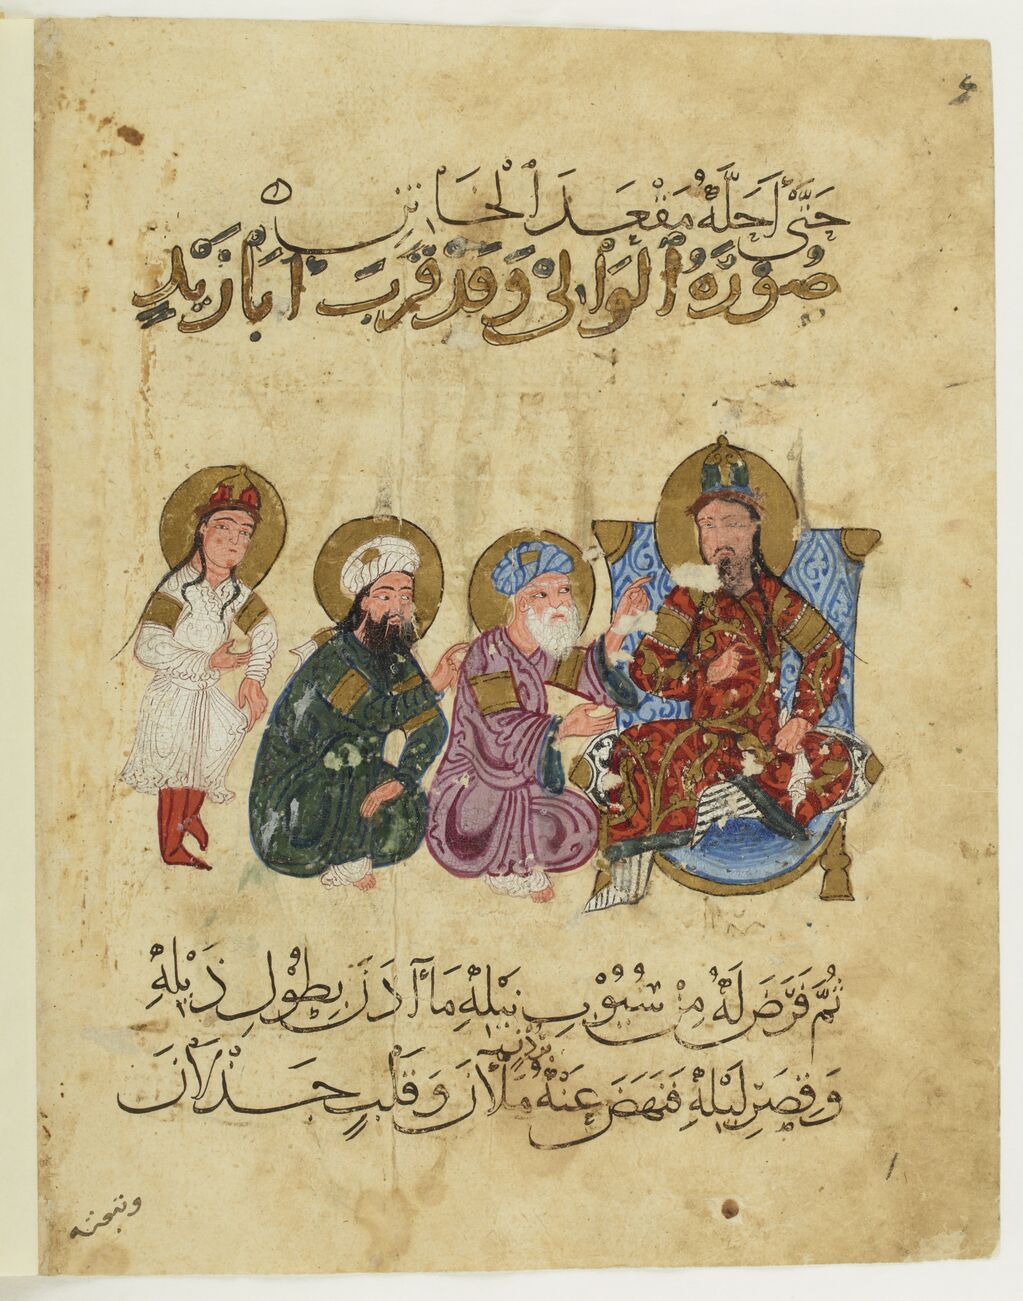 حَتَّى أَحَلَّهُ مَقْعَدَ الْخَاتِنِ
صُورَةُ الْوَالِي وَقَدْ قَرَّبَ أَبَا زَيْدٍ
ثُمَّ فَرَضَ لَهُ مِنْ سُيُوْبِ نَيْلِهِ مَا آذَنَ بِطُوْلِ ذَيْلِهِ
وَقِصَرِ لَيْلِهِ فَنَهَضَ عَنْهُ بِرُدْنٍ مَلْآنَ وَقَلْبٍ جَذْلَانَ
وتبعته